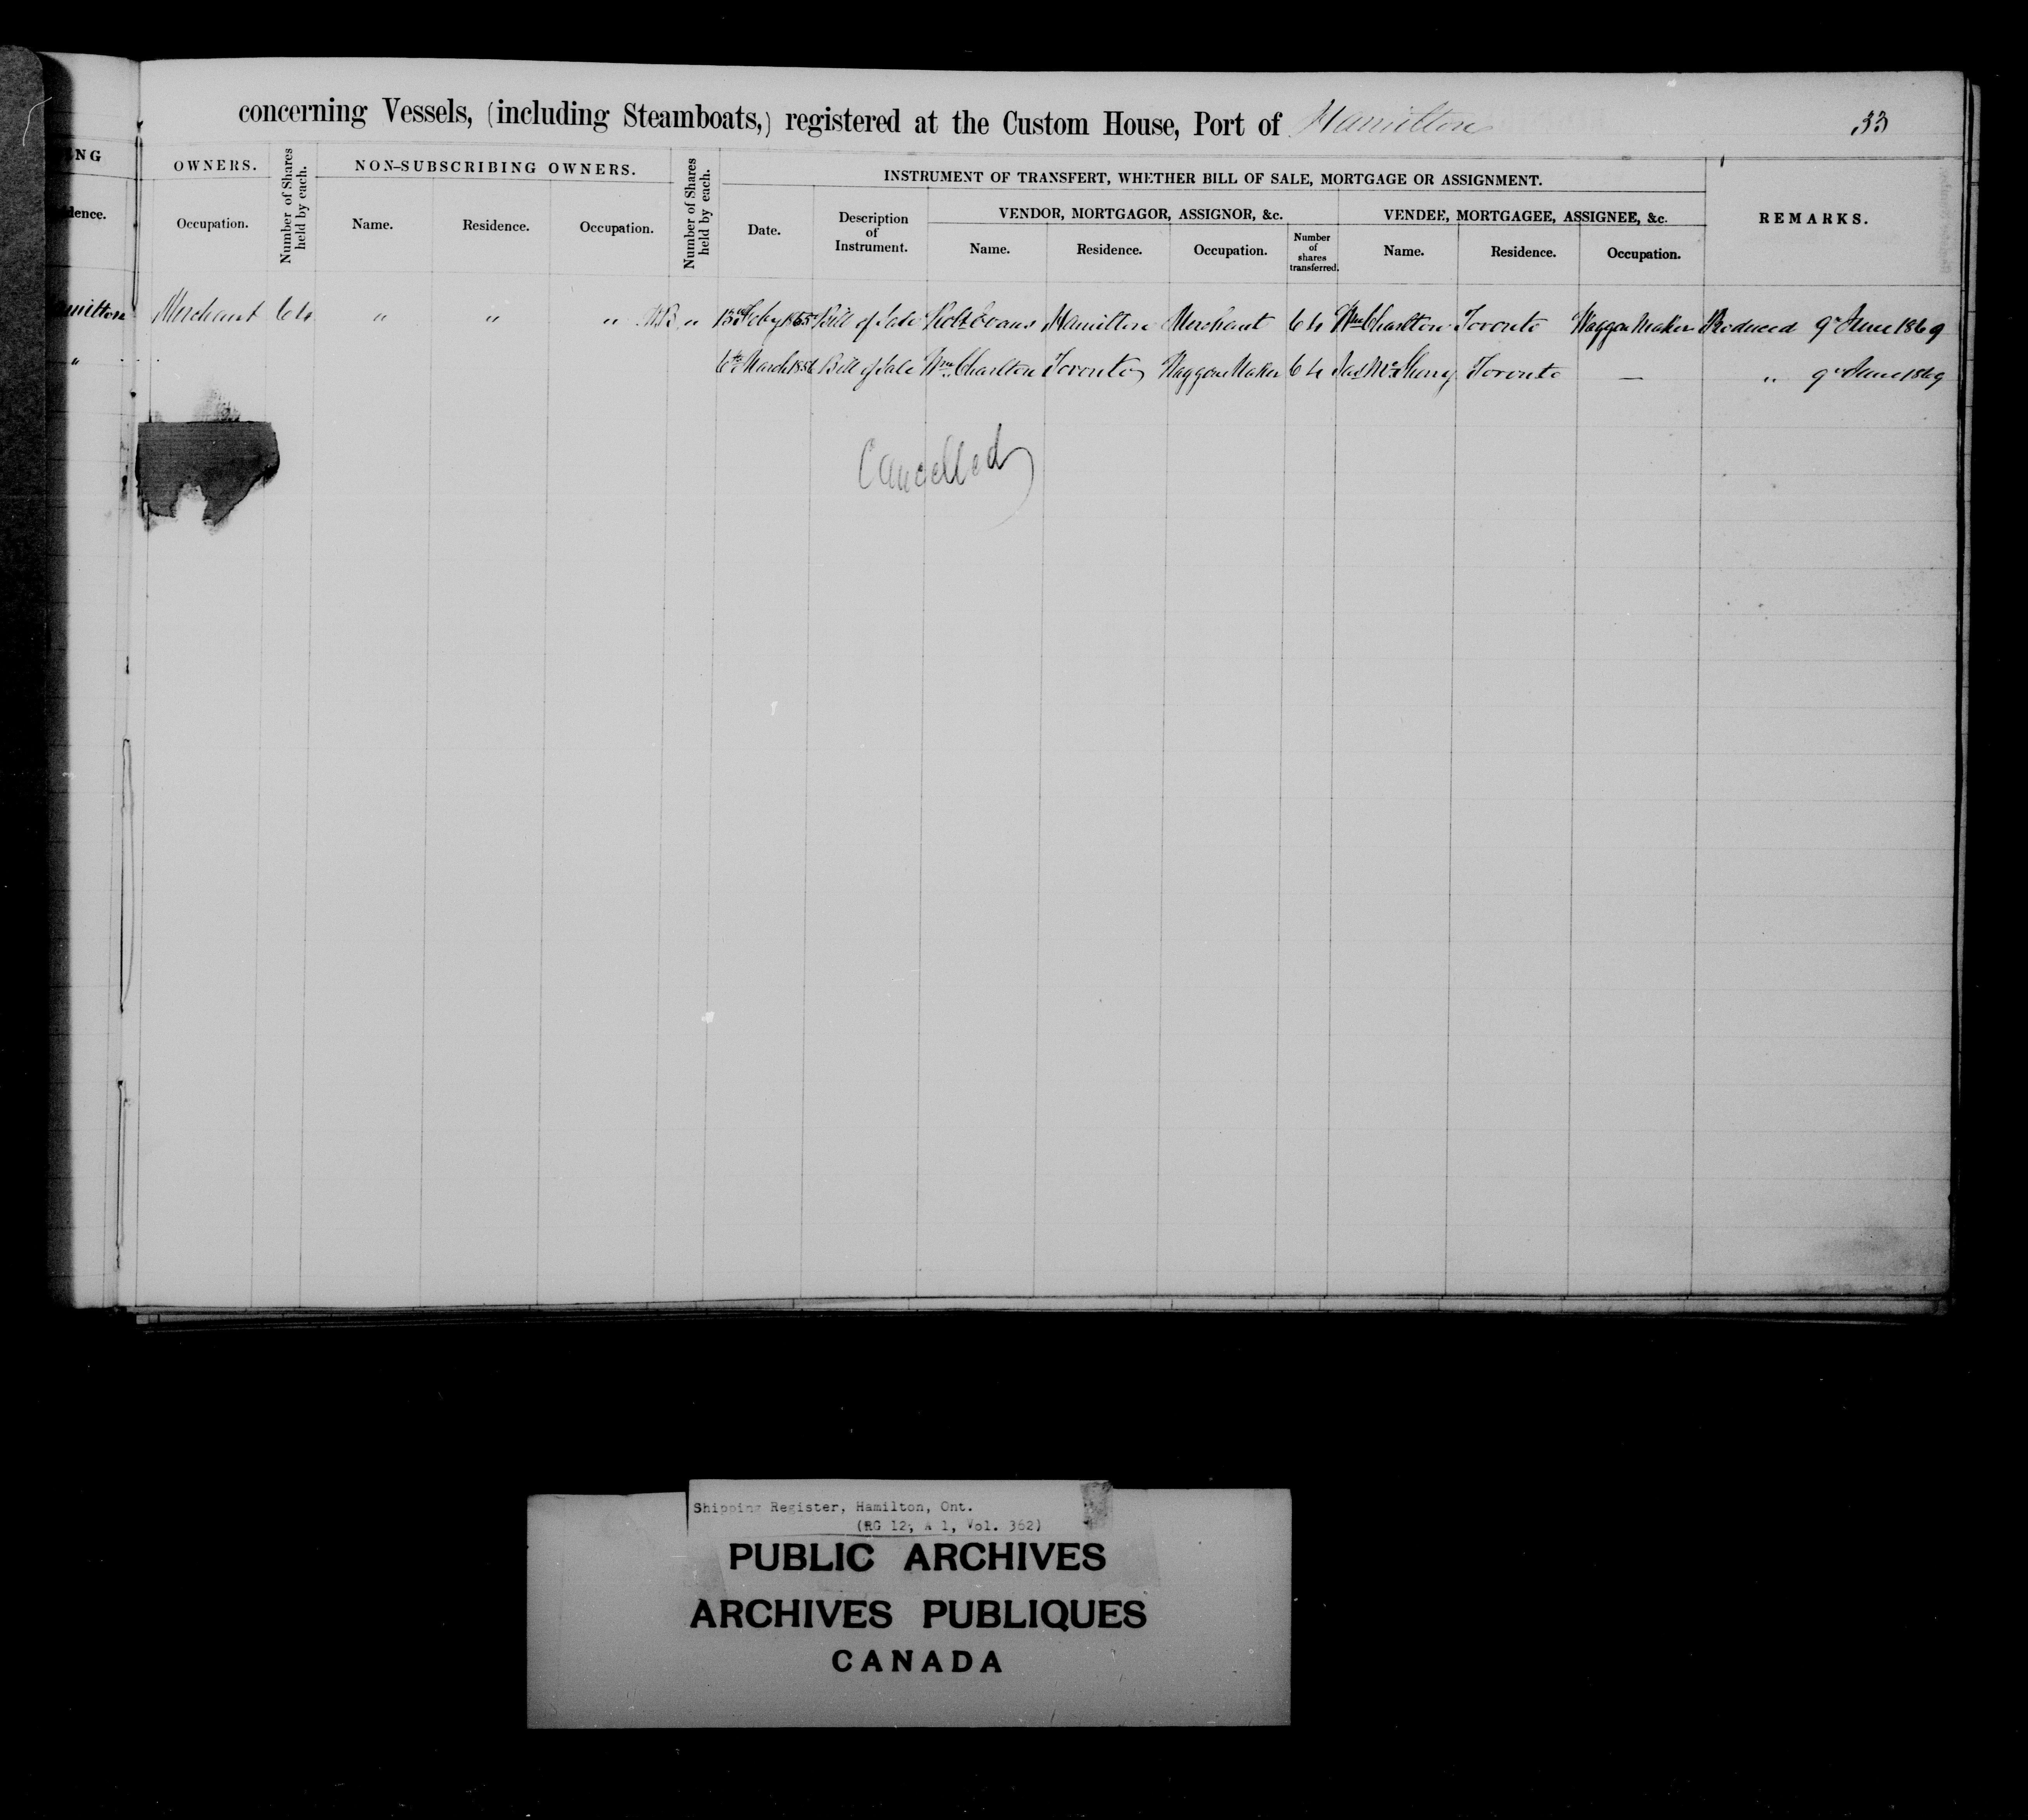 concerning Vessels, (including Steamboats,) registered at the Custom House, Port of Hamilton 33
NG OWNERS. Number of Shares held by each. NON-SUBSCRIBING OWNERS. Number of Shares held by each. INSTRUMENT OF TRANSFERT, WHETHER BILL OF SALE, MORTGAGE OR ASSIGNMENT. REMARKS.
VENDOR, MORTGAGOR, ASSIGNOR, &c. VENDEE, MORTGAGEE, ASSIGNEE, &c.
dence. Occupation. Name. Residence. Occupation. Date. Description of Instrument. Name. Residence. Occupation. Number of shares transferred. Name. Residence. Occupation.
amilton Merchant 64 " " " " 13th Feby 1865 Bill of Sale Robt Evans Hamilton Merchant 64 Wm Charlton Toronto Waggon Maker Produced 9th June 1869
" 6th March Bill of Sale Wm Charlton Toronto Waggon Maker 64 Jas McSherry Toronto — " 9th June 1869
Cancelled
Shipping Register, Hamilton, Ont.
(RG 12, A 1, Vol. 362)
PUBLIC ARCHIVES
ARCHIVES PUBLIQUES
CANADA